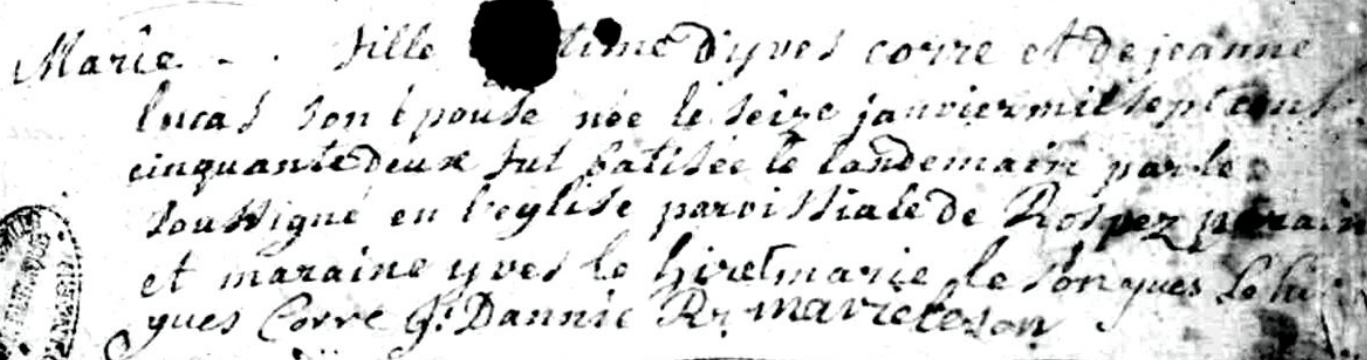 Marie - . fille time d'yves corre et de jeanne
lucas son epouse née le seize janvier mil sept cent
cinquante deux fut batisée le landemain par le
soussigné en l'eglise paroissiale de Rospez parain
et maraine yves le hiret marie le son yves Le hi
yves Corre G. Dannic Rr marie le son